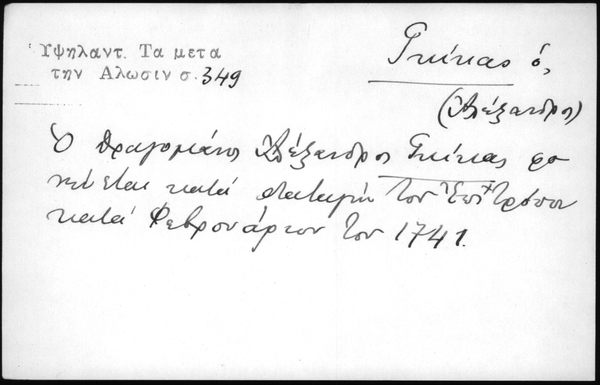 Ὑψηλαντ. Τα μετα
την Αλωσιν σ. 349
Γκίκας ὁ,
(Ἀλέξανδρος)
Ὁ δραγομάνος Ἀλέξανδρος Γκίκας φο
νεύεται κατά διαταγήν τοῦ Ἐπιτρόπου
κατά Φεβρουάριον του 1741.